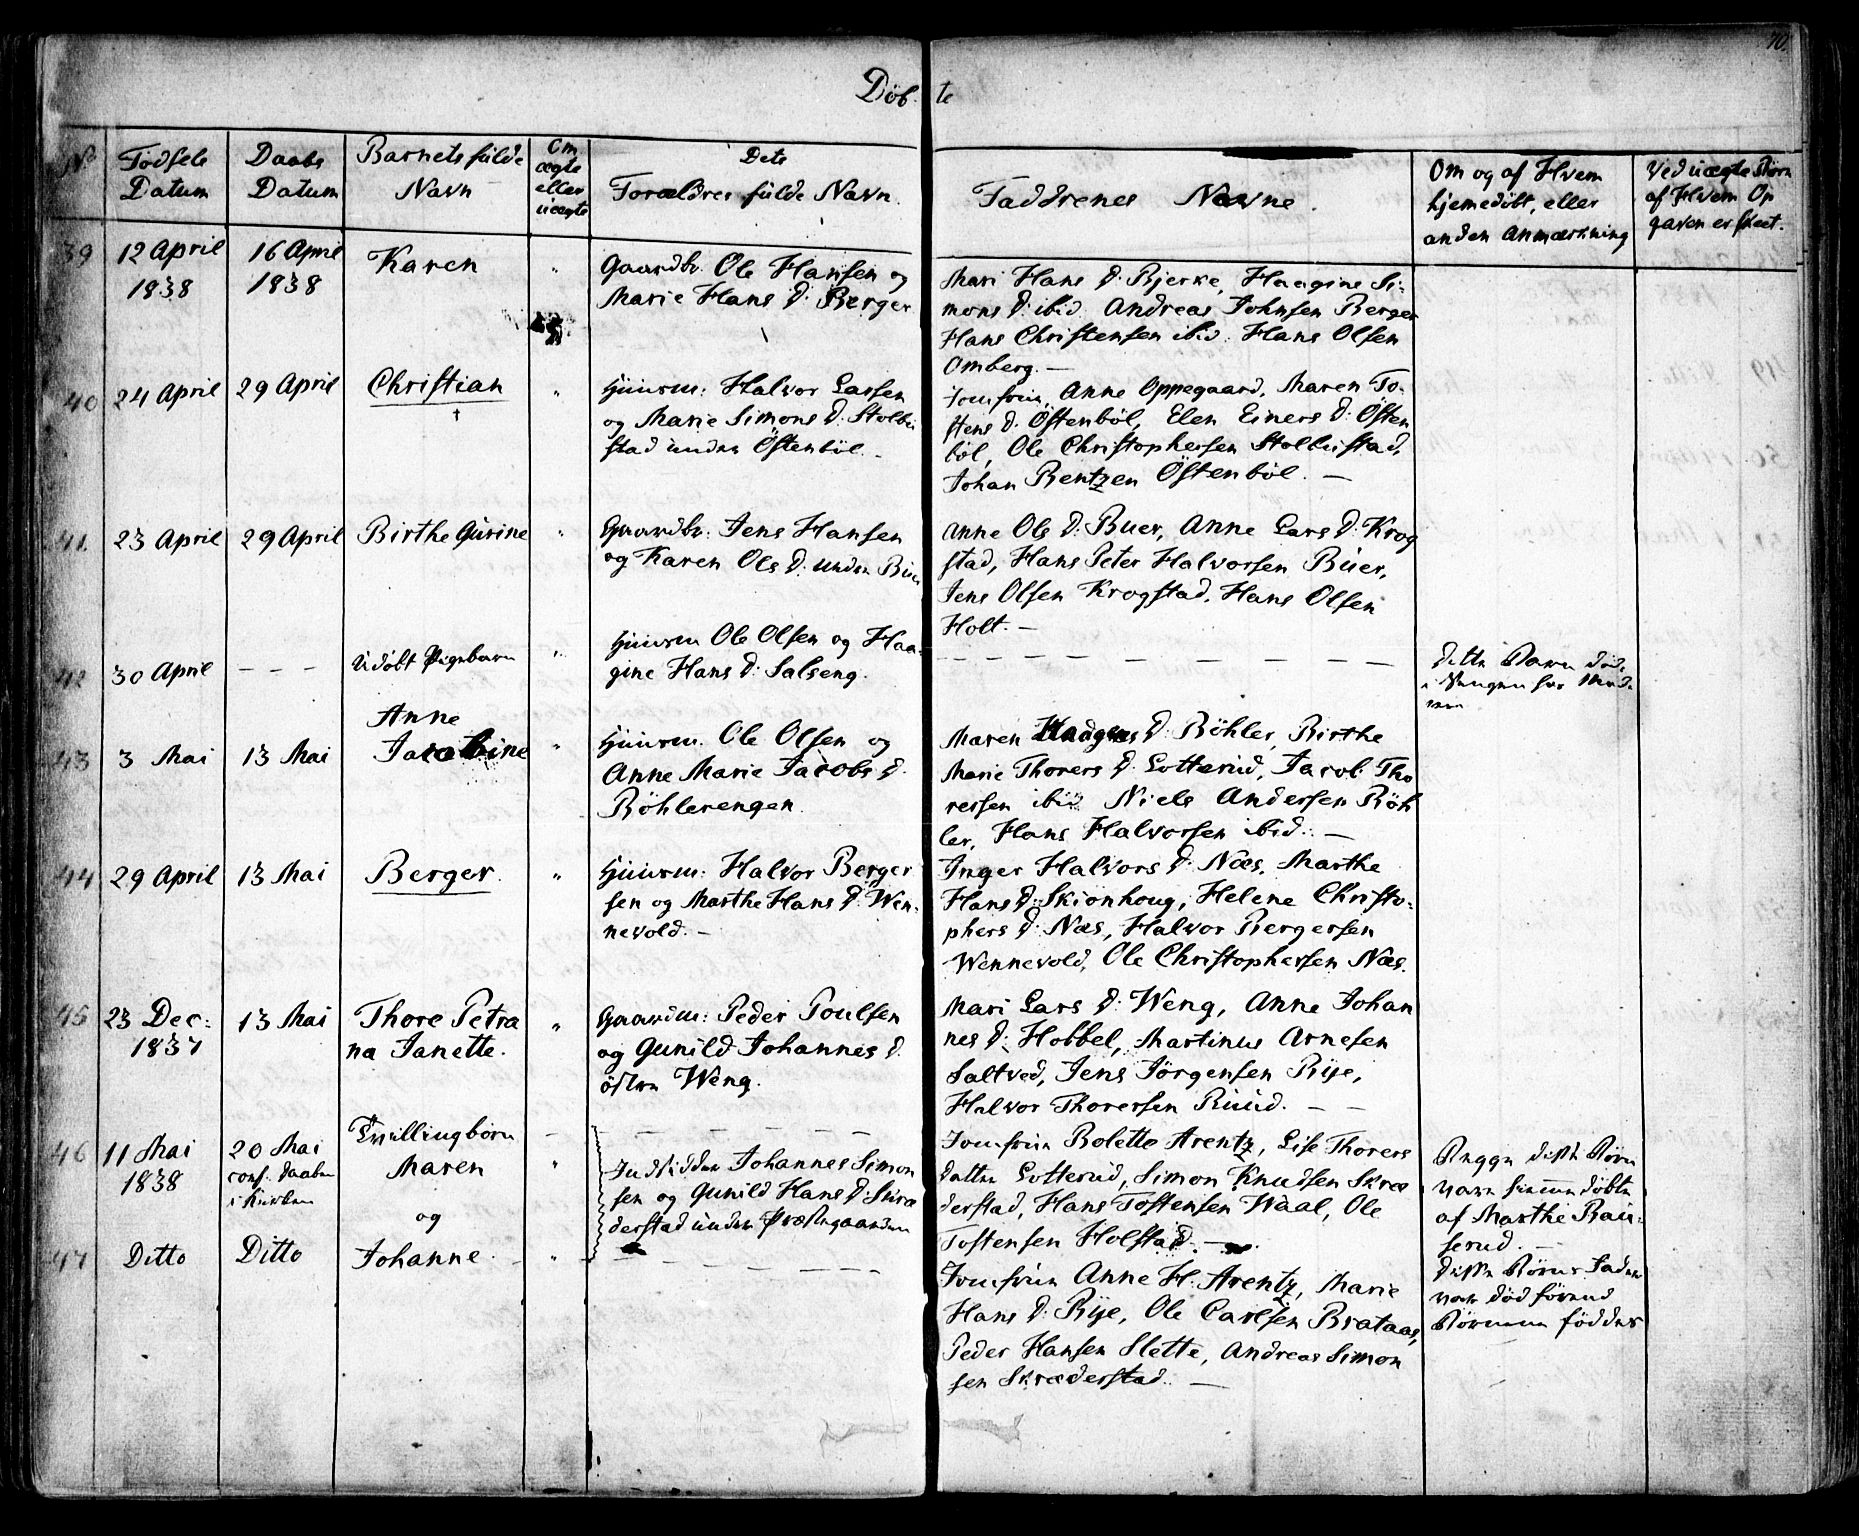 70.
Döb te
No
Födsels
Datum
Daabs
Datum
Barnets fulde
Navn
Om
ægte
eller
uægte
Dets
Forældres fulde Navn.
Faddrenes Navne.
Om og af Hvem
hjemedöbt, eller
anden Anmærkning
Ved uægte Börn
af Hvem Op
gaven er skeet.
39
12 April
1838
16 April
1838
Karen
"
Gaardbr. Ole Hansen og
Marie Hans D: Berger
Mari Hans D: Bjerke, Haagine Si-
mons D: ibid. Andreas Johnsen Berger
Hans Christensen ibid. Hans Olsen
Omberg. —
40
24 April
29 April
Christian
†
"
Huusm: Halvor Larsen
og Marie Simons D: Stolbu
stad under Östenböl. -
Jomfrue Anne Oppegaard, Maren To-
stens D. Östenböl, Elen Einers D: Östen
böl, Ole Christophersen Stolbustad,
Johan Bentzen Östenböl. —
41.
23 April
29 April
Birthe Gurine
"
Gaardbr: Jens Hansen
og Karen Ols D: under Buer
Anne Ols D: Buer, Anne Lars D: Krog
stad, Hans Peter Halvorsen Buer,
Jens Olsen Krogstad, Hans Olsen
Holt. —
42
30 April
— — —
Udöbt Pigebarn
"
Huusm Ole Olsen og Haa-
gine Hans D: Salseng.
— — — — — — — — —
dette Barn döde
i Vuggen hos Mode-
ren
43
3 Mai
13 Mai
Anne
Jacobine
"
Huusm. Ole Olsen og
Anne Marie Jacobs D.
Böhlerengen.
Maren D: Böhler, Birthe
Marie Thorers D: Lotterud, Jacob Tho
ressen ibid Niels Andersen Böh
ler, Hans Halvorsen ibid.. —
44
29 April
13 Mai
Berger.
"
Huusm: Halvor Berger
sen og Marthe Hans D: Wen-
nevold. —
Inger Halvors D: Næs, Marthe
Hans D: Skionhoug, Helene Christo-
phers D: Næs, Halvor Bergersen
Wennevold, Ole Christophersen Næs.
45
23 Dec:
1837
13 Mai
Thore Petra
na Janette.
"
Gaardm: Peder Poulsen
og Gunild Johannes D.
östre Weng.
Mari Lars D: Weng, Anne Johan
nes D: Hobbel, Martinus Arnesen
Saltved, Jens Jörgensen Rije,
Halvor Thorersen Ruud. — —
46
11 Mai
1838
20 Mai
conf. Daaben
i Kirken
Tvillingbörn
Maren
og
"
Indsidder Johannes Simon
sen og Gunild Hans D: Skræ
derstad under Præstegaarden
Jomfrue Bolette Arentz, Lise Thorers
datter Lotterud, Simon Knudsen Skræ
derstad, Hans Tostensen Waal, Ole
Tostensen Holstad. —
Begge disse Börn
vare hiemmedöbte
af Marthe Rau-
serud. —
47
Ditto
Ditto
Johanne.
"
Jomfrue Anne H: Arentz, Marie
Hans D: Rije, Ole Carlsen Brataas,
Peder Hansen Slette, Andreas Simon
sen Skræderstad. —
disse Börns Fader
var död förend
Börnene föddes